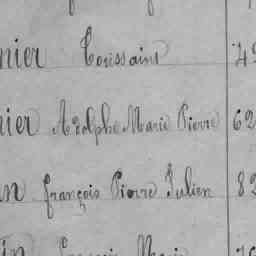 nier Toussaint 49
nier Adolphe Marie Pierre 62
n françois Pierre Julien 82
in Marie